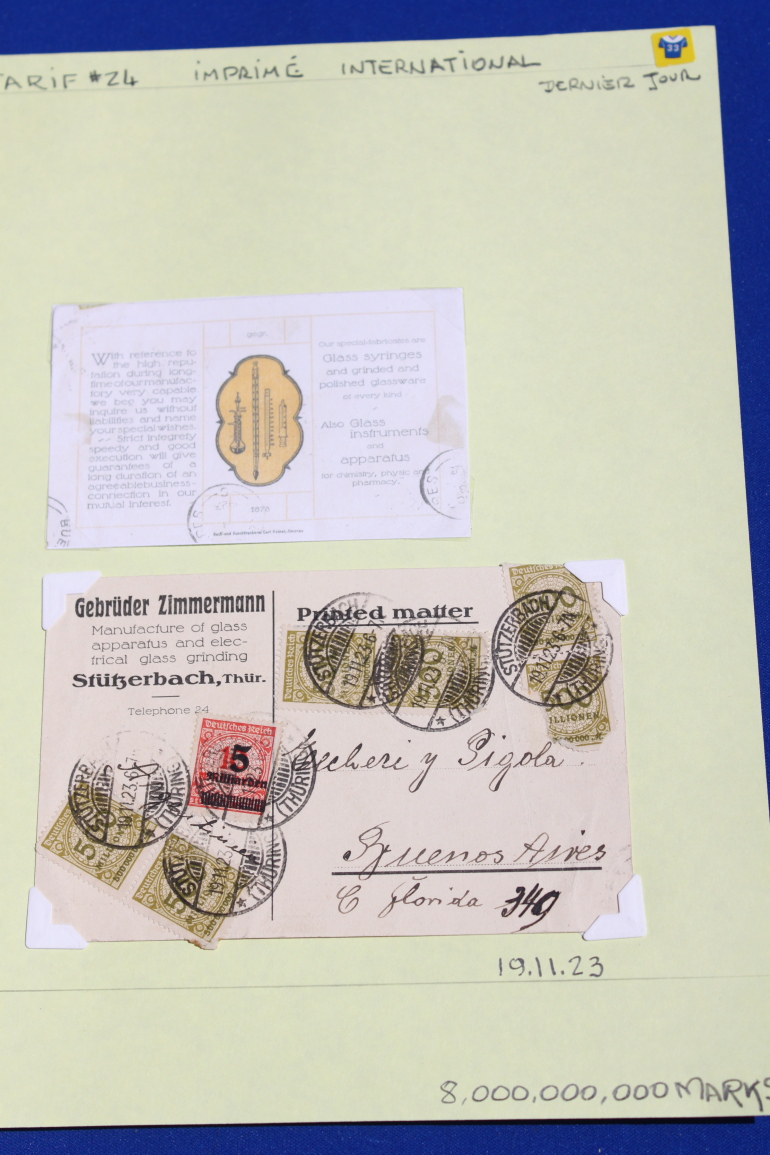 TARIF #24 IMPRIMÉ INTERNATIONAL
33
DERNIER JOUR
With reference to
the high repu-
tation during long-
time of our manufac-
tory very capable
we beg you may
inquire us without
liabilities and name
your special wishes.
Strict integrety
speedy and good
execution will give
guarantees of a
long duration of an
agreeable business-
connection in our
mutual interest.
gegr.
1878
Our special-fabricates are
Glass syringes
and grinded and
polished glassware
of every kind
Also Glass
instruments
and
apparatus
for chemistry, physic and
pharmacy.
Gebrüder Zimmermann
Manufacture of glass
apparatus and elec-
trical glass grinding
Stützerbach, Thür.
Telephone 24
Printed matter
Deutsches Reich
STÜTZERBACH
19.11.23.6-7N.
(THÜRINGEN)
LLIONEN
Deutsches Reich
5
Milliarden
y Pigola.
Buenos Aires
C Florida 349
19.11.23
8,000,000,000 MARKS